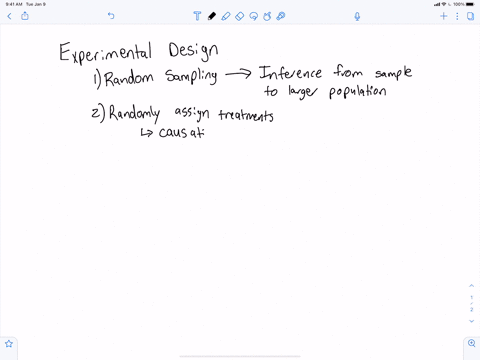 9:41 AM Tue Jan 9
100%
Experimental Design
1) Random Sampling → Inference from sample
to larger population
2) Randomly assign treatments
↳ causat
1
2